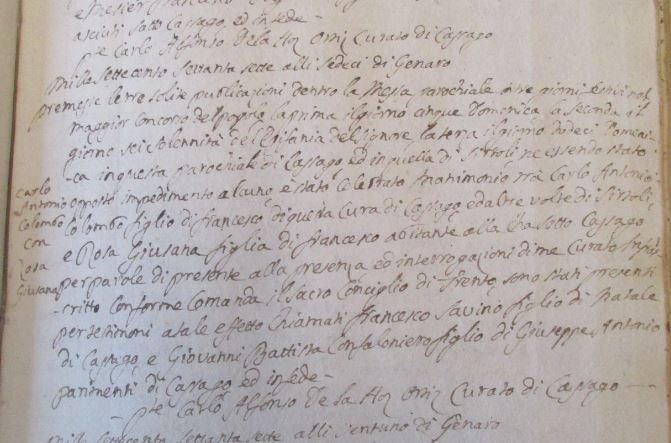 asciuti sotto Cassago, ed in fede -
Pte Carlo Affonso De la Hoz Ortiz Curato di Cassago
Mille Settecento Settanta sette alli Sedeci di Genaro
premesse le tre solite publicazioni dentro la Messa parochiale in tre giorni festivi nel
maggior concorso del popolo la prima il giorno cinque Domenica la seconda il
giorno sei solennità dell'Epifania del Signore la terza il giorno dodeci Domeni-
ca in questa parochiale di Cassago ed in quella di Sirtoli ne essendo stato
opposto impedimento alcuno è stato celebrato Matrimonio tra Carlo Antonio
Colombo figlio di Francesco di questa Cura di Cassago ed altre volte di Sirtoli,
e Rosa Giusana figlia di Francesco abitante alla Cha sotto Cassago
per parole di presente alla presenza ed interrogazioni di me Curato Infras-
critto conforme comanda il Sacro Conciglio di Trento, sono stati presenti
per testimoni a tale effetto chiamati Francesco Savino figlio di Natale
di Cassago, e Giovanni Battista Confaloniero figlio di Giuseppe Antonio
parimenti di Cassago, ed in fede -
Pte Carlo Affonso De la Hoz Ortiz Curato di Cassago
Mille Settecento Settanta sette alli Ventuno di Genaro
Carlo
Antonio
Colombo
con
Rosa
Giusana